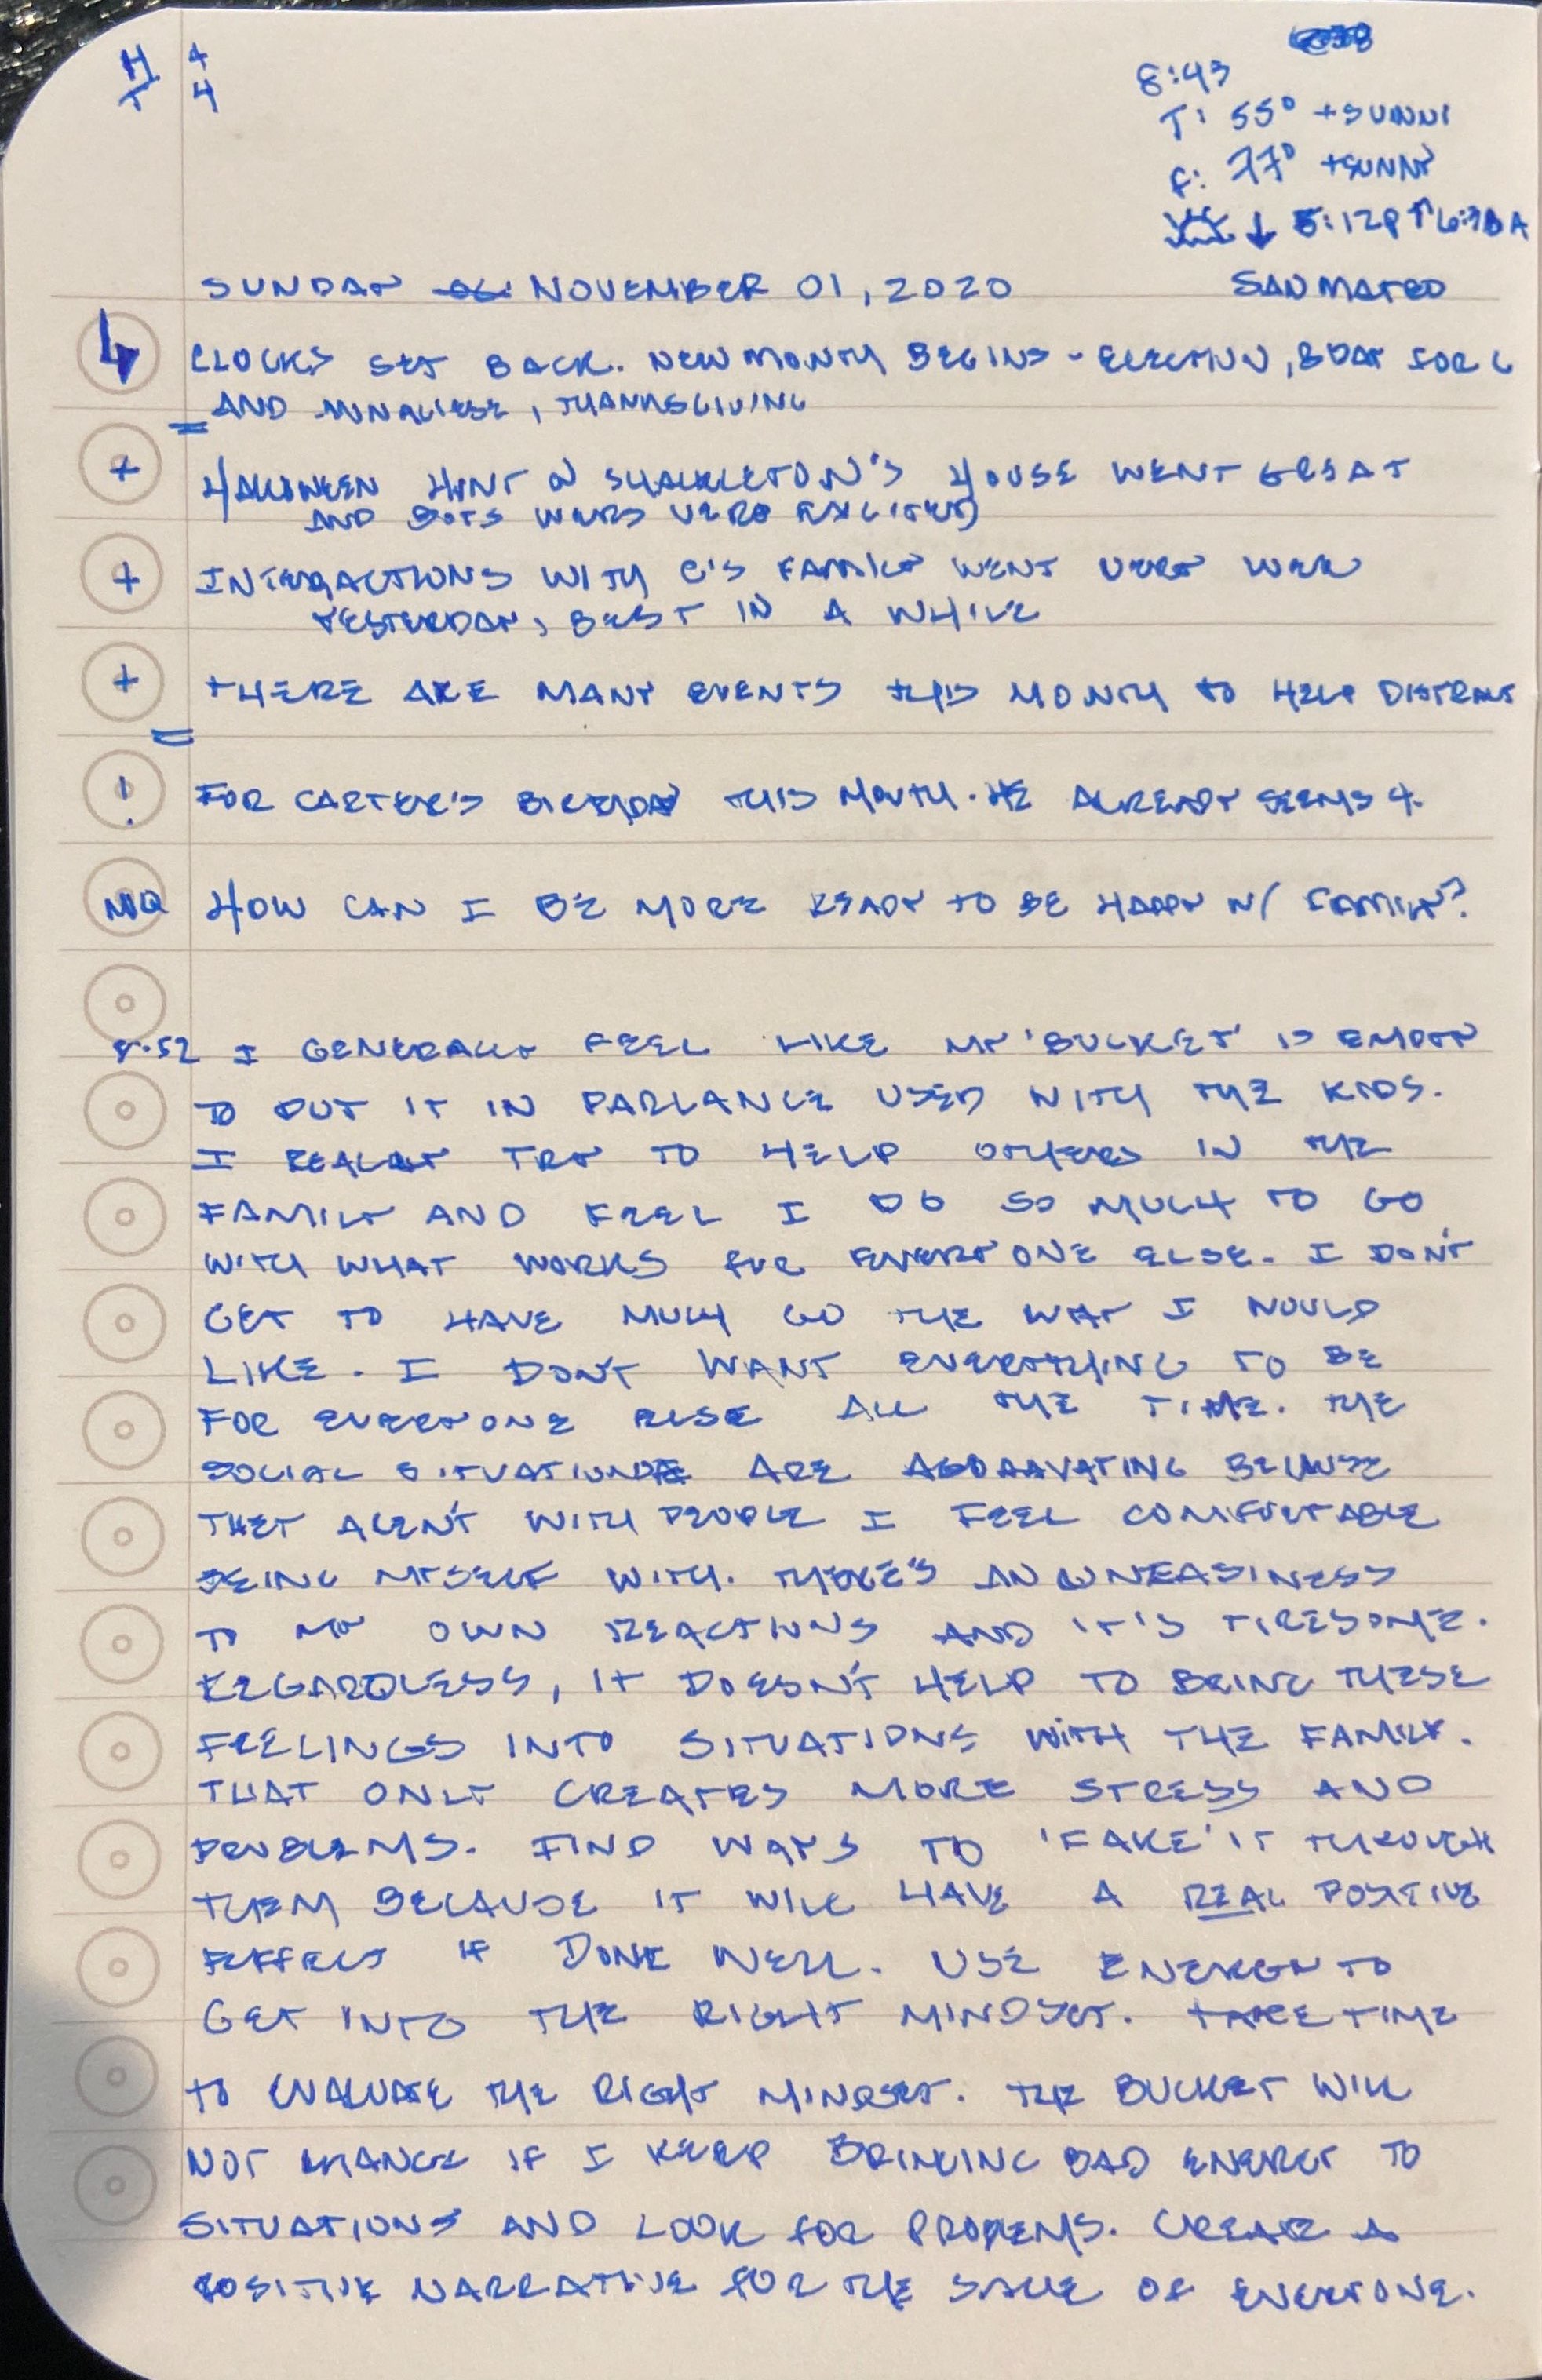 H +
T 4
8:43
T: 55° + SUNNY
F: 77° + SUNNY
↓ 5:12P ↑ 6:38A
SUNDAY NOVEMBER 01, 2020 SAN MATEO
CLOCKS SET BACK. NEW MONTH BEGINS - ELECTION, BDAY FOR C
AND, THANKSGIVING
+ HALLOWEEN HUNT @ SHACKLETON'S HOUSE WENT GREAT
AND BOYS WERE VERY EXCITED
+ INTERACTIONS WITH C'S FAMILY WENT VERY WELL
YESTERDAY, BEST IN A WHILE
+ THERE ARE MANY EVENTS THIS MONTH TO HELP DISTRACT
! FOR CARTER'S BIRTHDAY THIS MONTH. HE ALREADY SEEMS 4.
MQ HOW CAN I BE MORE READY TO BE HAPPY W/ FAMILY?
8:52 I GENERALLY FEEL LIKE MY 'BUCKET' IS EMPTY
TO PUT IT IN PARLANCE USED WITH THE KIDS.
I REALLY TRY TO HELP OTHERS IN THE
FAMILY AND FEEL I DO SO MUCH TO GO
WITH WHAT WORKS FOR EVERYONE ELSE. I DON'T
GET TO HAVE MUCH GO THE WAY I WOULD
LIKE. I DON'T WANT EVERYTHING TO BE
FOR EVERYONE ELSE ALL THE TIME. THE
SOCIAL SITUATIONS ARE AGGRAVATING BECAUSE
THEY AREN'T WITH PEOPLE I FEEL COMFORTABLE
BEING MYSELF WITH. THERE'S AN UNEASINESS
TO MY OWN REACTIONS AND IT'S TIRESOME.
REGARDLESS, IT DOESN'T HELP TO BRING THESE
FEELINGS INTO SITUATIONS WITH THE FAMILY.
THAT ONLY CREATES MORE STRESS AND
PROBLEMS. FIND WAYS TO 'FAKE' IT THROUGH
THEM BECAUSE IT WILL HAVE A REAL POSITIVE
EFFECT IF DONE WELL. USE ENERGY TO
GET INTO THE RIGHT MINDSET. TAKE TIME
TO EVALUATE THE RIGHT MINDSET. THE BUCKET WILL
NOT CHANGE IF I KEEP BRINGING BAD ENERGY TO
SITUATIONS AND LOOK FOR PROBLEMS. CREATE A
POSITIVE NARRATIVE FOR THE SAKE OF EVERYONE.